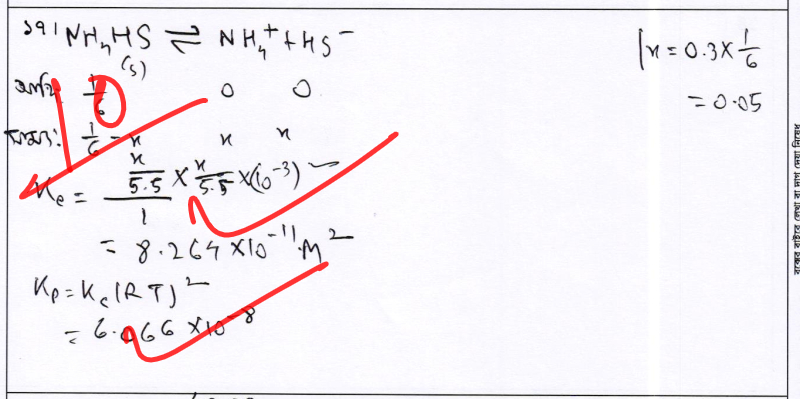 ১৭। NH₄HS ⇌ NH₄⁺ + HS⁻
(s)
1/6 0 0
1/6 - x x x
Kc = (x/5.5 × x/5.5 × (10⁻³)²) / 1
= 8.264 × 10⁻¹¹ M²
Kp = Kc (RT)²
= 6.066 × 10⁻⁸
x = 0.3 × 1/6
= 0.05
বক্সের বাইরে লেখা বা দাগ দেয়া নিষেধ